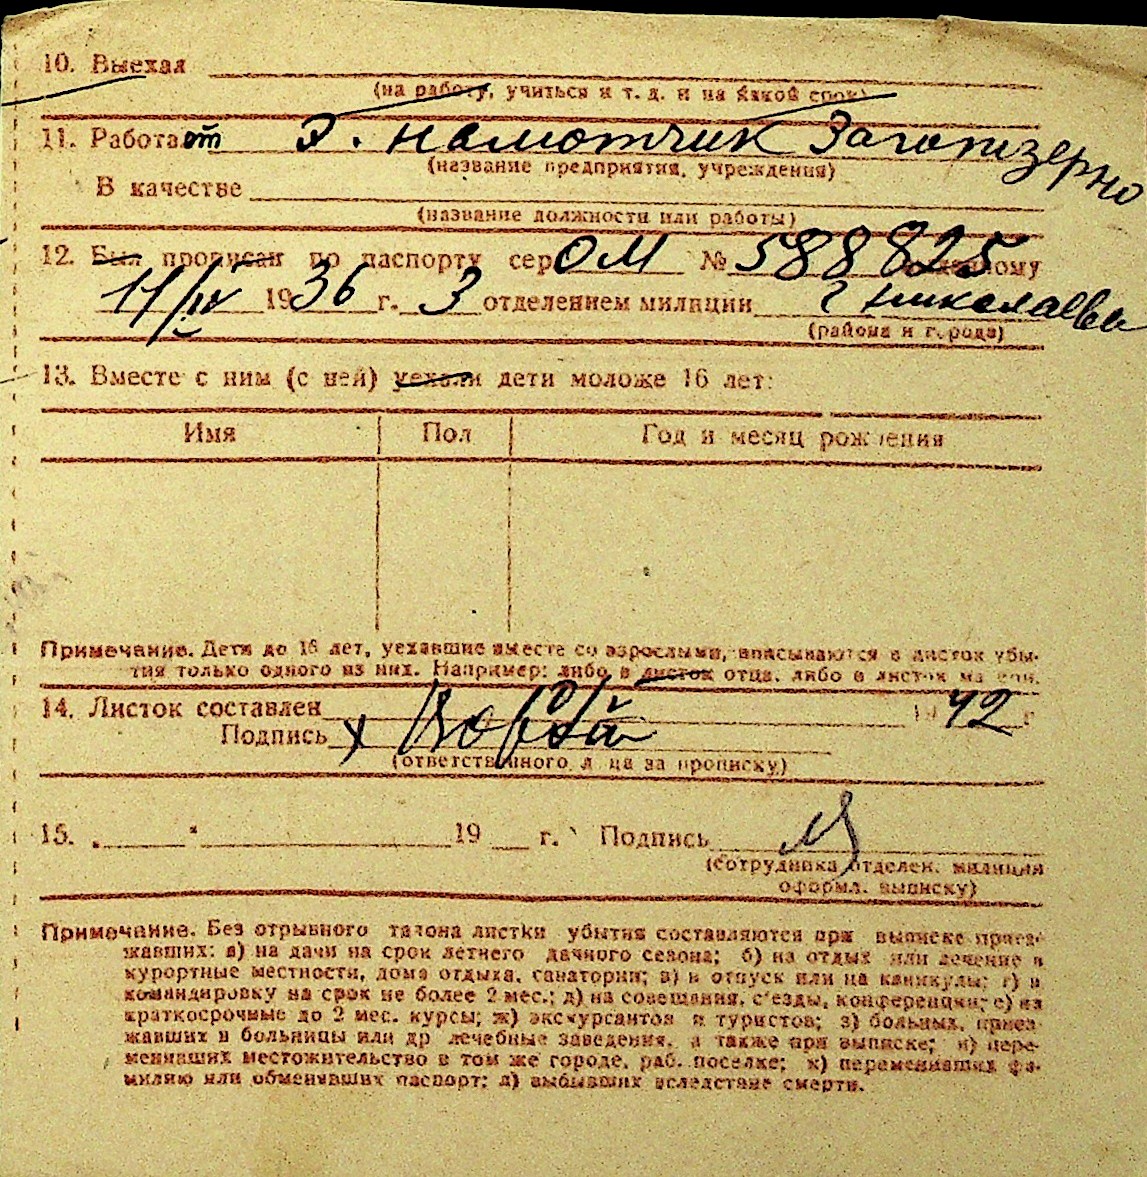 10. Выехал
(на работу, учиться и т. д. и на какой срок)
11. Работает Э. намотчик Заготзерно
(название предприятия, учреждения)
В качестве
(название должности или работы)
12. Был прописан по паспорту сер. ОМ № 588825 выданному
11/IV 1936 г. 3 отделением милиции г Николаева
(района и города)
13. Вместе с ним (с ней) уехали дети моложе 16 лет:
Имя Пол Год и месяц рождения
Примечание. Дети до 16 лет, уехавшие вместе со взрослыми, вписываются в листок убы-
тия только одного из них. Например: либо в листок отца, либо в листок матери.
14. Листок составлен 1942 г
Подпись х
(ответственного лица за прописку)
15. „ " 19 г. Подпись
(сотрудника отделен. милиции
оформл. выписку)
Примечание. Без отрывного талона листки убытия составляются при выписке приез-
жавших: а) на дачи на срок летнего дачного сезона; б) на отдых или лечение в
курортные местности, дома отдыха, санатории; в) в отпуск или на каникулы; г) в
командировку на срок не более 2 мес.; д) на совещания, с'езды, конференции; е) на
краткосрочные до 2 мес. курсы; ж) экскурсантов и туристов; з) больных, приез-
жавших в больницы или др лечебные заведения, а также при выписке; и) пере-
менивших местожительство в том же городе, раб. поселке; к) переменивших фа-
милию или обменявших паспорт; л) выбывших вследствие смерти.